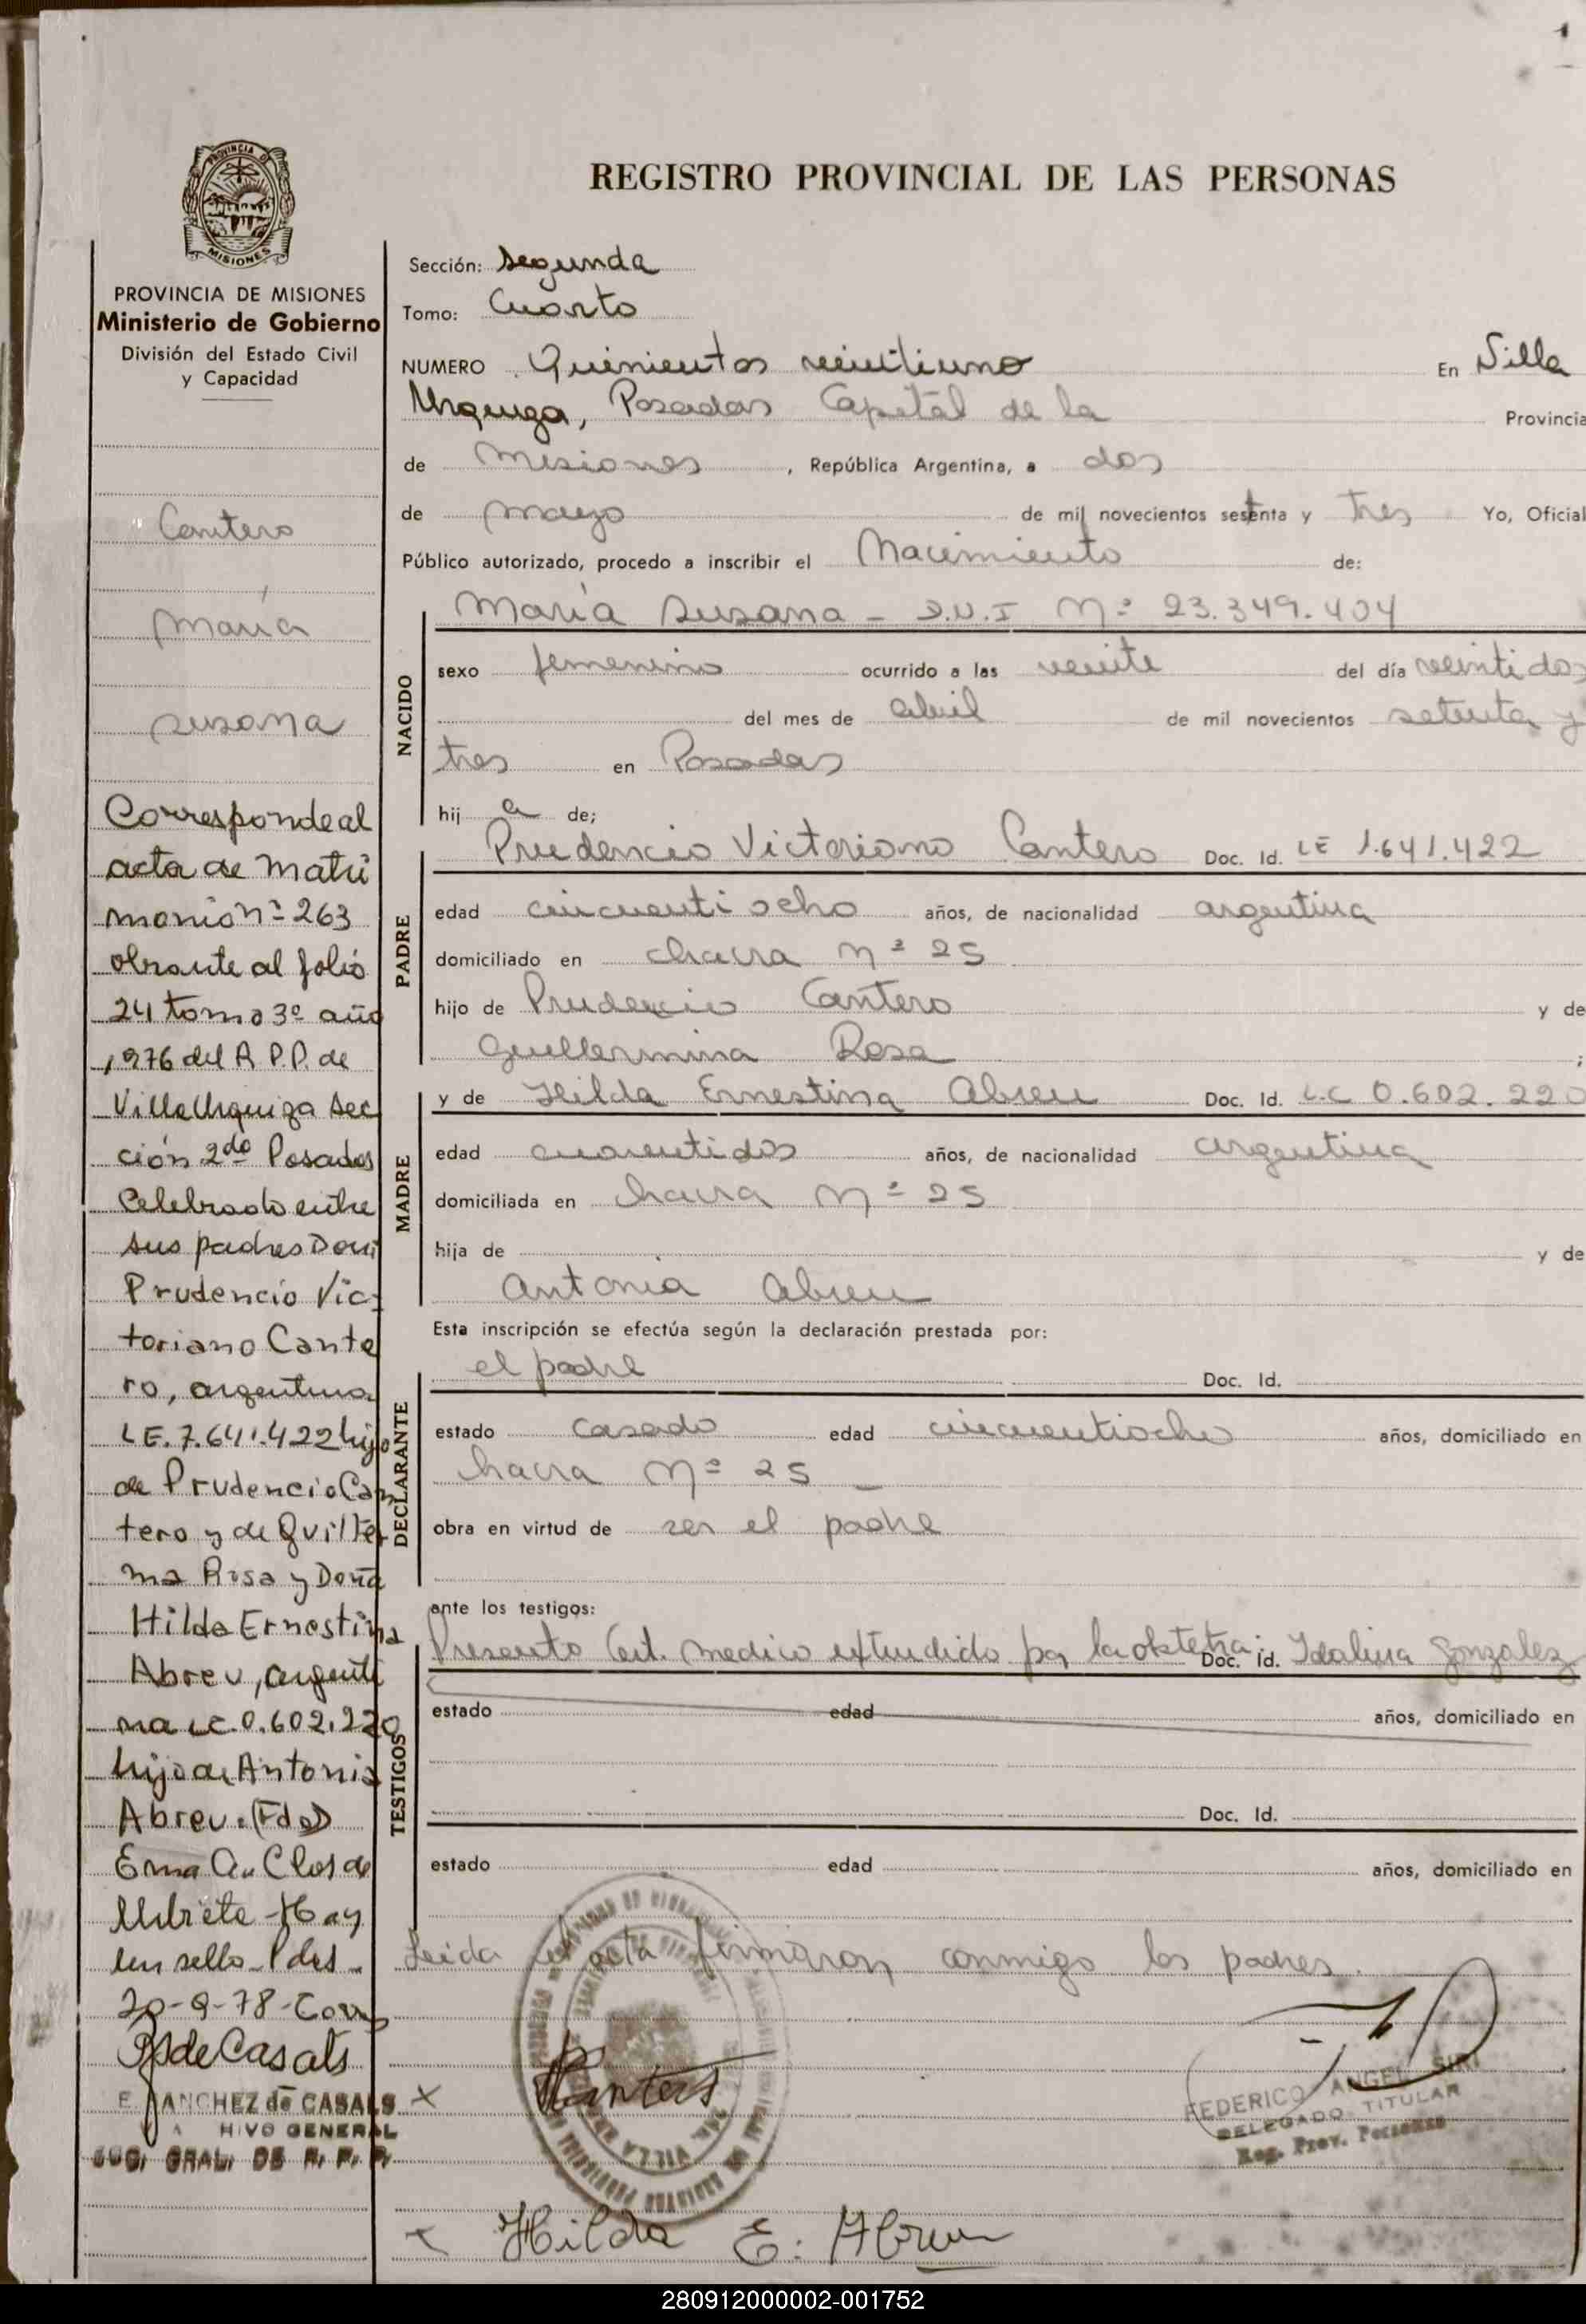 REGISTRO PROVINCIAL DE LAS PERSONAS
PROVINCIA DE MISIONES
PROVINCIA DE MISIONES
Ministerio de Gobierno
División del Estado Civil
y Capacidad
Cantero
María
Susana
Corresponde al
acta de Matri
monio nº 263
obrante al folio
24 tomo 3º año
1976 del R.P.P. de
Villa Urquiza Sec
ción 2da Posadas
Celebrado entre
sus padres Don
Prudencio Vic
toriano Cante
ro, argentino
LE. 7.641.422 hijo
de Prudencio Can
tero y de Guiller
ma Rosa y Doña
Hilda Ernestina
Abreu, argenti
na LC. 0.602.220
hija de Antonia
Abreu. (Fdo)
Ema A. Clos de
Hay
un sello. Pdas.
20-9-78-
de Casals
E. SANCHEZ de CASALS
HIVO GENERAL
GRAL. DE R. P. P.
Sección: Segunda
Tomo: Cuarto
NUMERO Quinientos veintiuno En Villa
Urquiza, Posadas Capital de la Provincia
de Misiones, República Argentina, a dos
de mayo de mil novecientos setenta y tres Yo, Oficial
Público autorizado, procedo a inscribir el Nacimiento de:
NACIDO
María Susana - D.U.I Nº 23.349.404
sexo femenino ocurrido a las veinte del día veintidos
del mes de abril de mil novecientos setenta y
tres en Posadas
hij a de;
PADRE
Prudencio Victoriano Cantero Doc. Id. LE 1.641.422
edad cincuentiocho años, de nacionalidad argentina
domiciliado en chacra nº 25
hijo de Prudencio Cantero y de
Guillermina Rosa ;
MADRE
y de Hilda Ernestina Abreu Doc. Id. L.C 0.602.220
edad cuarentidos años, de nacionalidad argentina
domiciliada en chacra nº 25
hija de y de
Antonia Abreu
Esta inscripción se efectúa según la declaración prestada por:
DECLARANTE
el padre Doc. Id.
estado casado edad cincuentiocho años, domiciliado en
chacra nº 25
obra en virtud de ser el padre
ante los testigos:
TESTIGOS
Presento Cert. medico extendido por la obstetra: Doc. Id. Idalina Gonzalez
estado edad años, domiciliado en
Doc. Id.
estado edad años, domiciliado en
Leida el acta firmaron conmigo los padres.
FEDERICO ANGEL SIRI
DELEGADO TITULAR
Reg. Prov. Personas
x Cantero
x Hilda E. Abreu
280912000002-001752